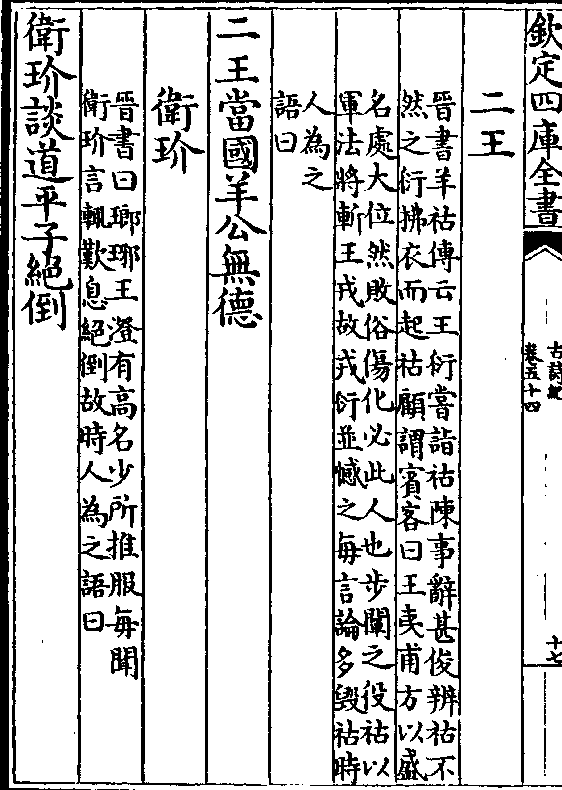 欽定四庫全書
古詩紀
卷五十四
十七
二王
晉書羊祜傳云王衍嘗詣祜陳事辭甚俊辨祜不
然之衍拂衣而起祜顧謂賓客曰王夷甫方以盛
名處大位然敗俗傷化必此人也步闡之役祜以
軍法將斬王戎故戎衍並憾之毎言論多毀祜時
人為之
語曰
二王當國羊公無德
衛玠
晉書曰瑯琊王澄有高名少所推服毎聞
衛玠言輒歎息絕倒故時人為之語曰
衛玠談道平子絕倒